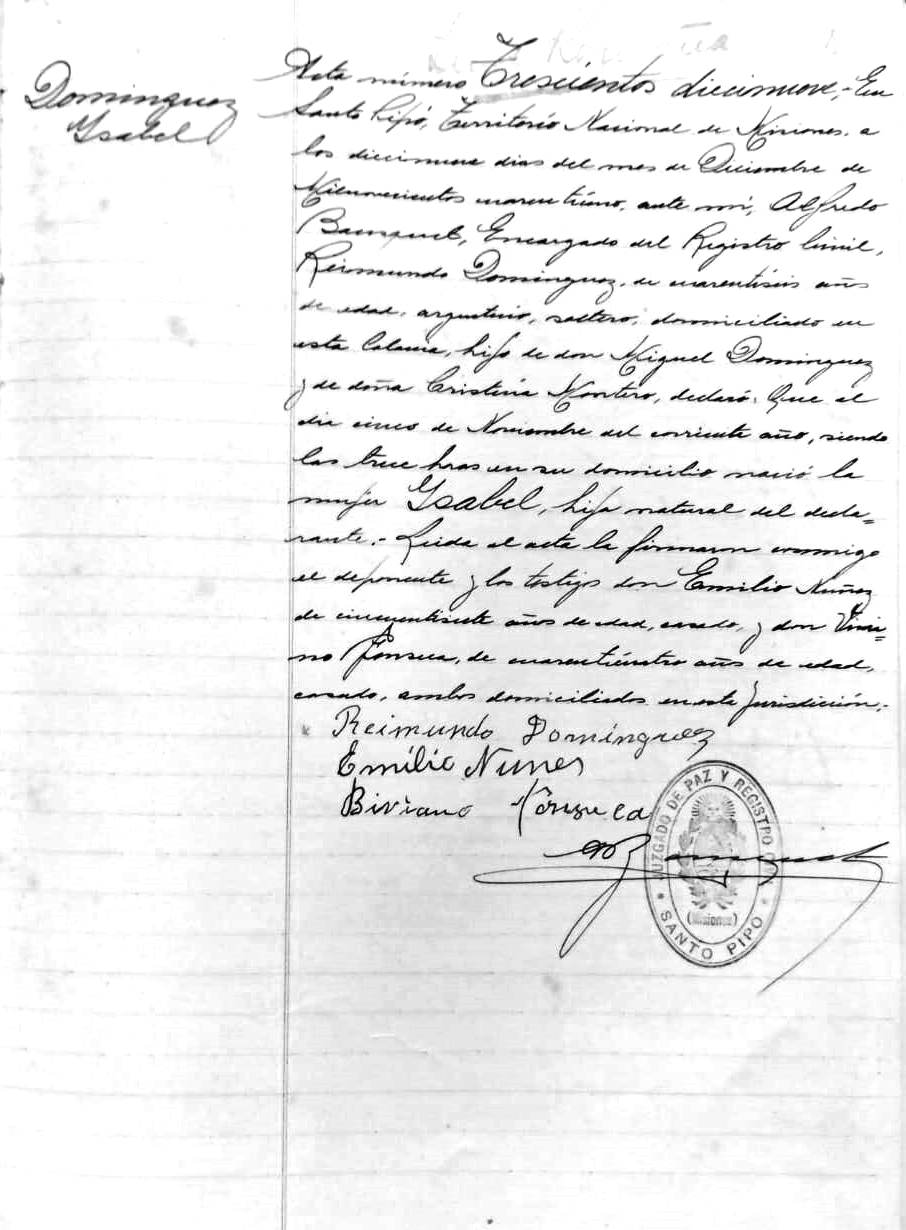 Dominguez
Ysabel
Acta número Trescientos diecinueve,- En
Santo Pipó, Territorio Nacional de Misiones, a
los diecinueve dias del mes de Diciembre de
Milnovecientos cuarentiuno, ante mi, Alfredo
Encargado del Registro Civil,
Reimundo Dominguez, de cuarentiseis años
de edad, argentino, soltero, domiciliado en
esta Colonia, hijo de don Miguel Dominguez
y de doña Cristina Montero, declaró: Que el
dia cinco de Noviembre del corriente año, siendo
las trece hras en su domicilio nació la
mujer Ysabel, hija natural del decla=
rante.- Leida el acta la firmaron conmigo
el deponente y los testigos don Emilio Nuñez
de cincuentisiete años de edad, casado, y don Vivia=
no Fonseca, de cuarenticuatro años de edad,
casado, ambos domiciliados en esta jurisdicción.-
Reimundo Domínguez
Emilio Nunes
Biviano Fônseca
JUZGADO DE PAZ Y REGISTRO CIVIL
(Misiones)
SANTO PIPO